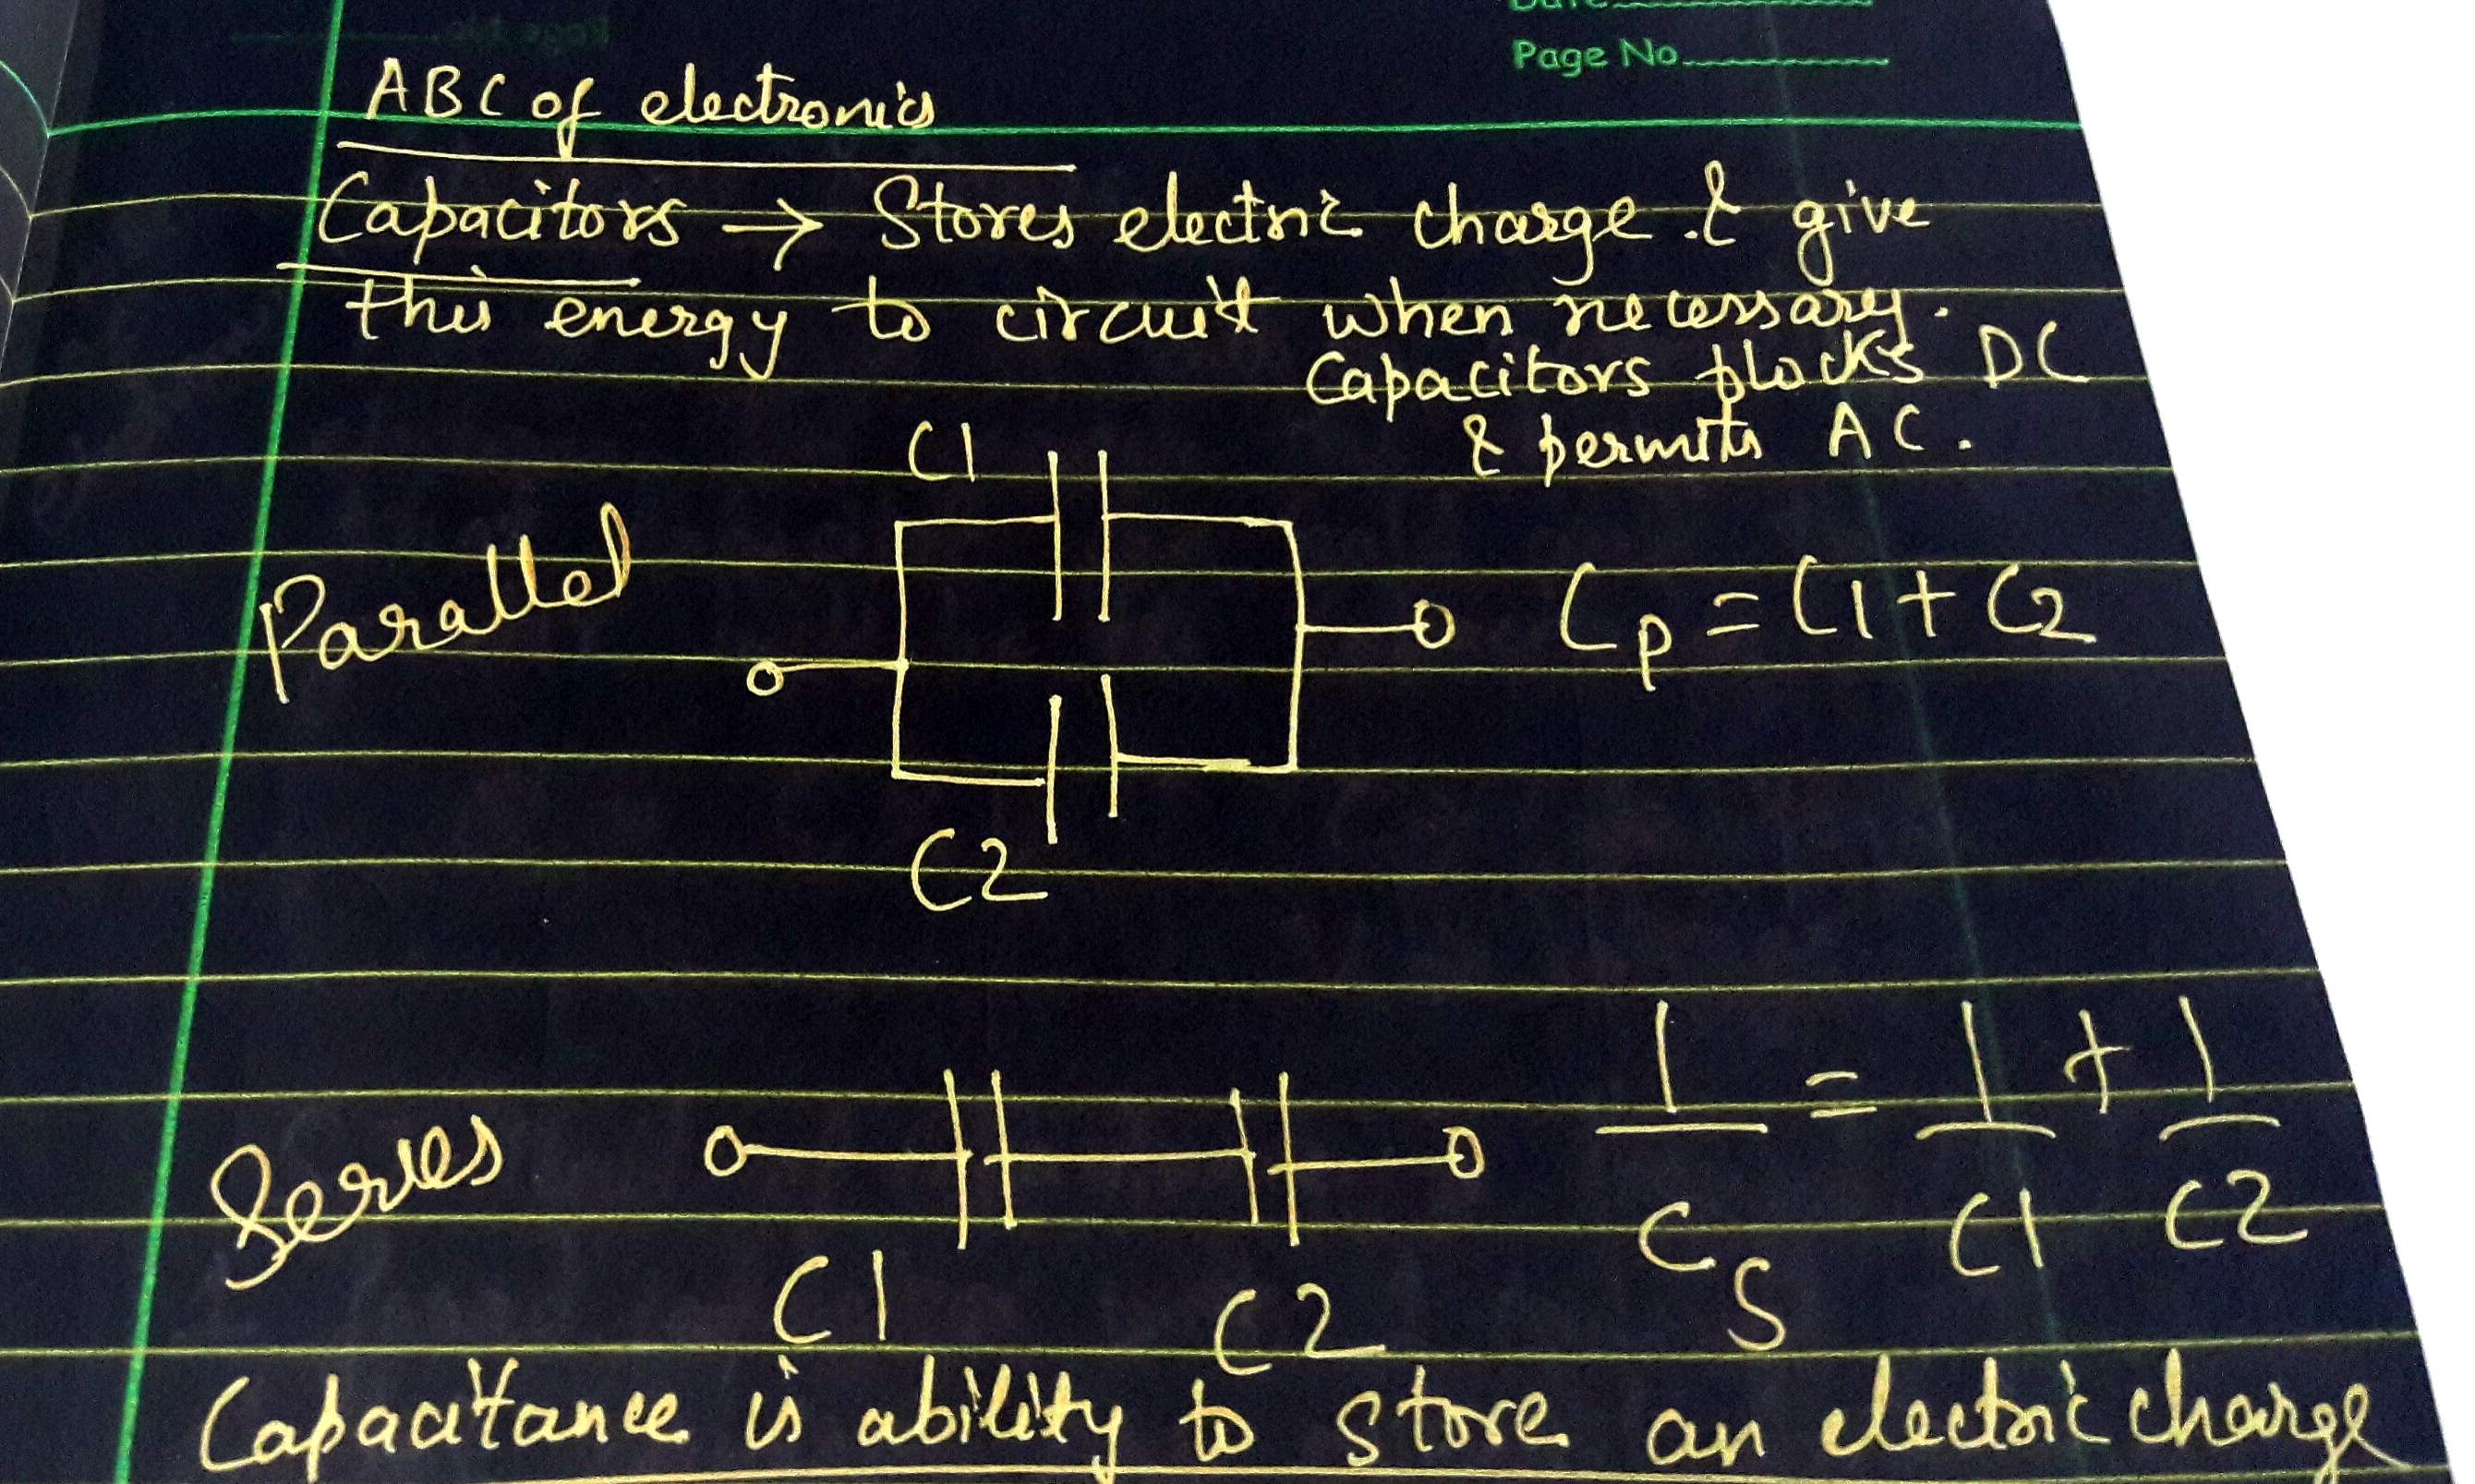 Page No.
ABC of electronics
Capacitors → Stores electric charge & give
this energy to circuit when necessary.
Capacitors blocks DC
& permits AC.
C1
Parallel
Cp = C1 + C2
C2
Series
1/Cs = 1/C1 + 1/C2
C1 C2
Capacitance is ability to store an electric charge